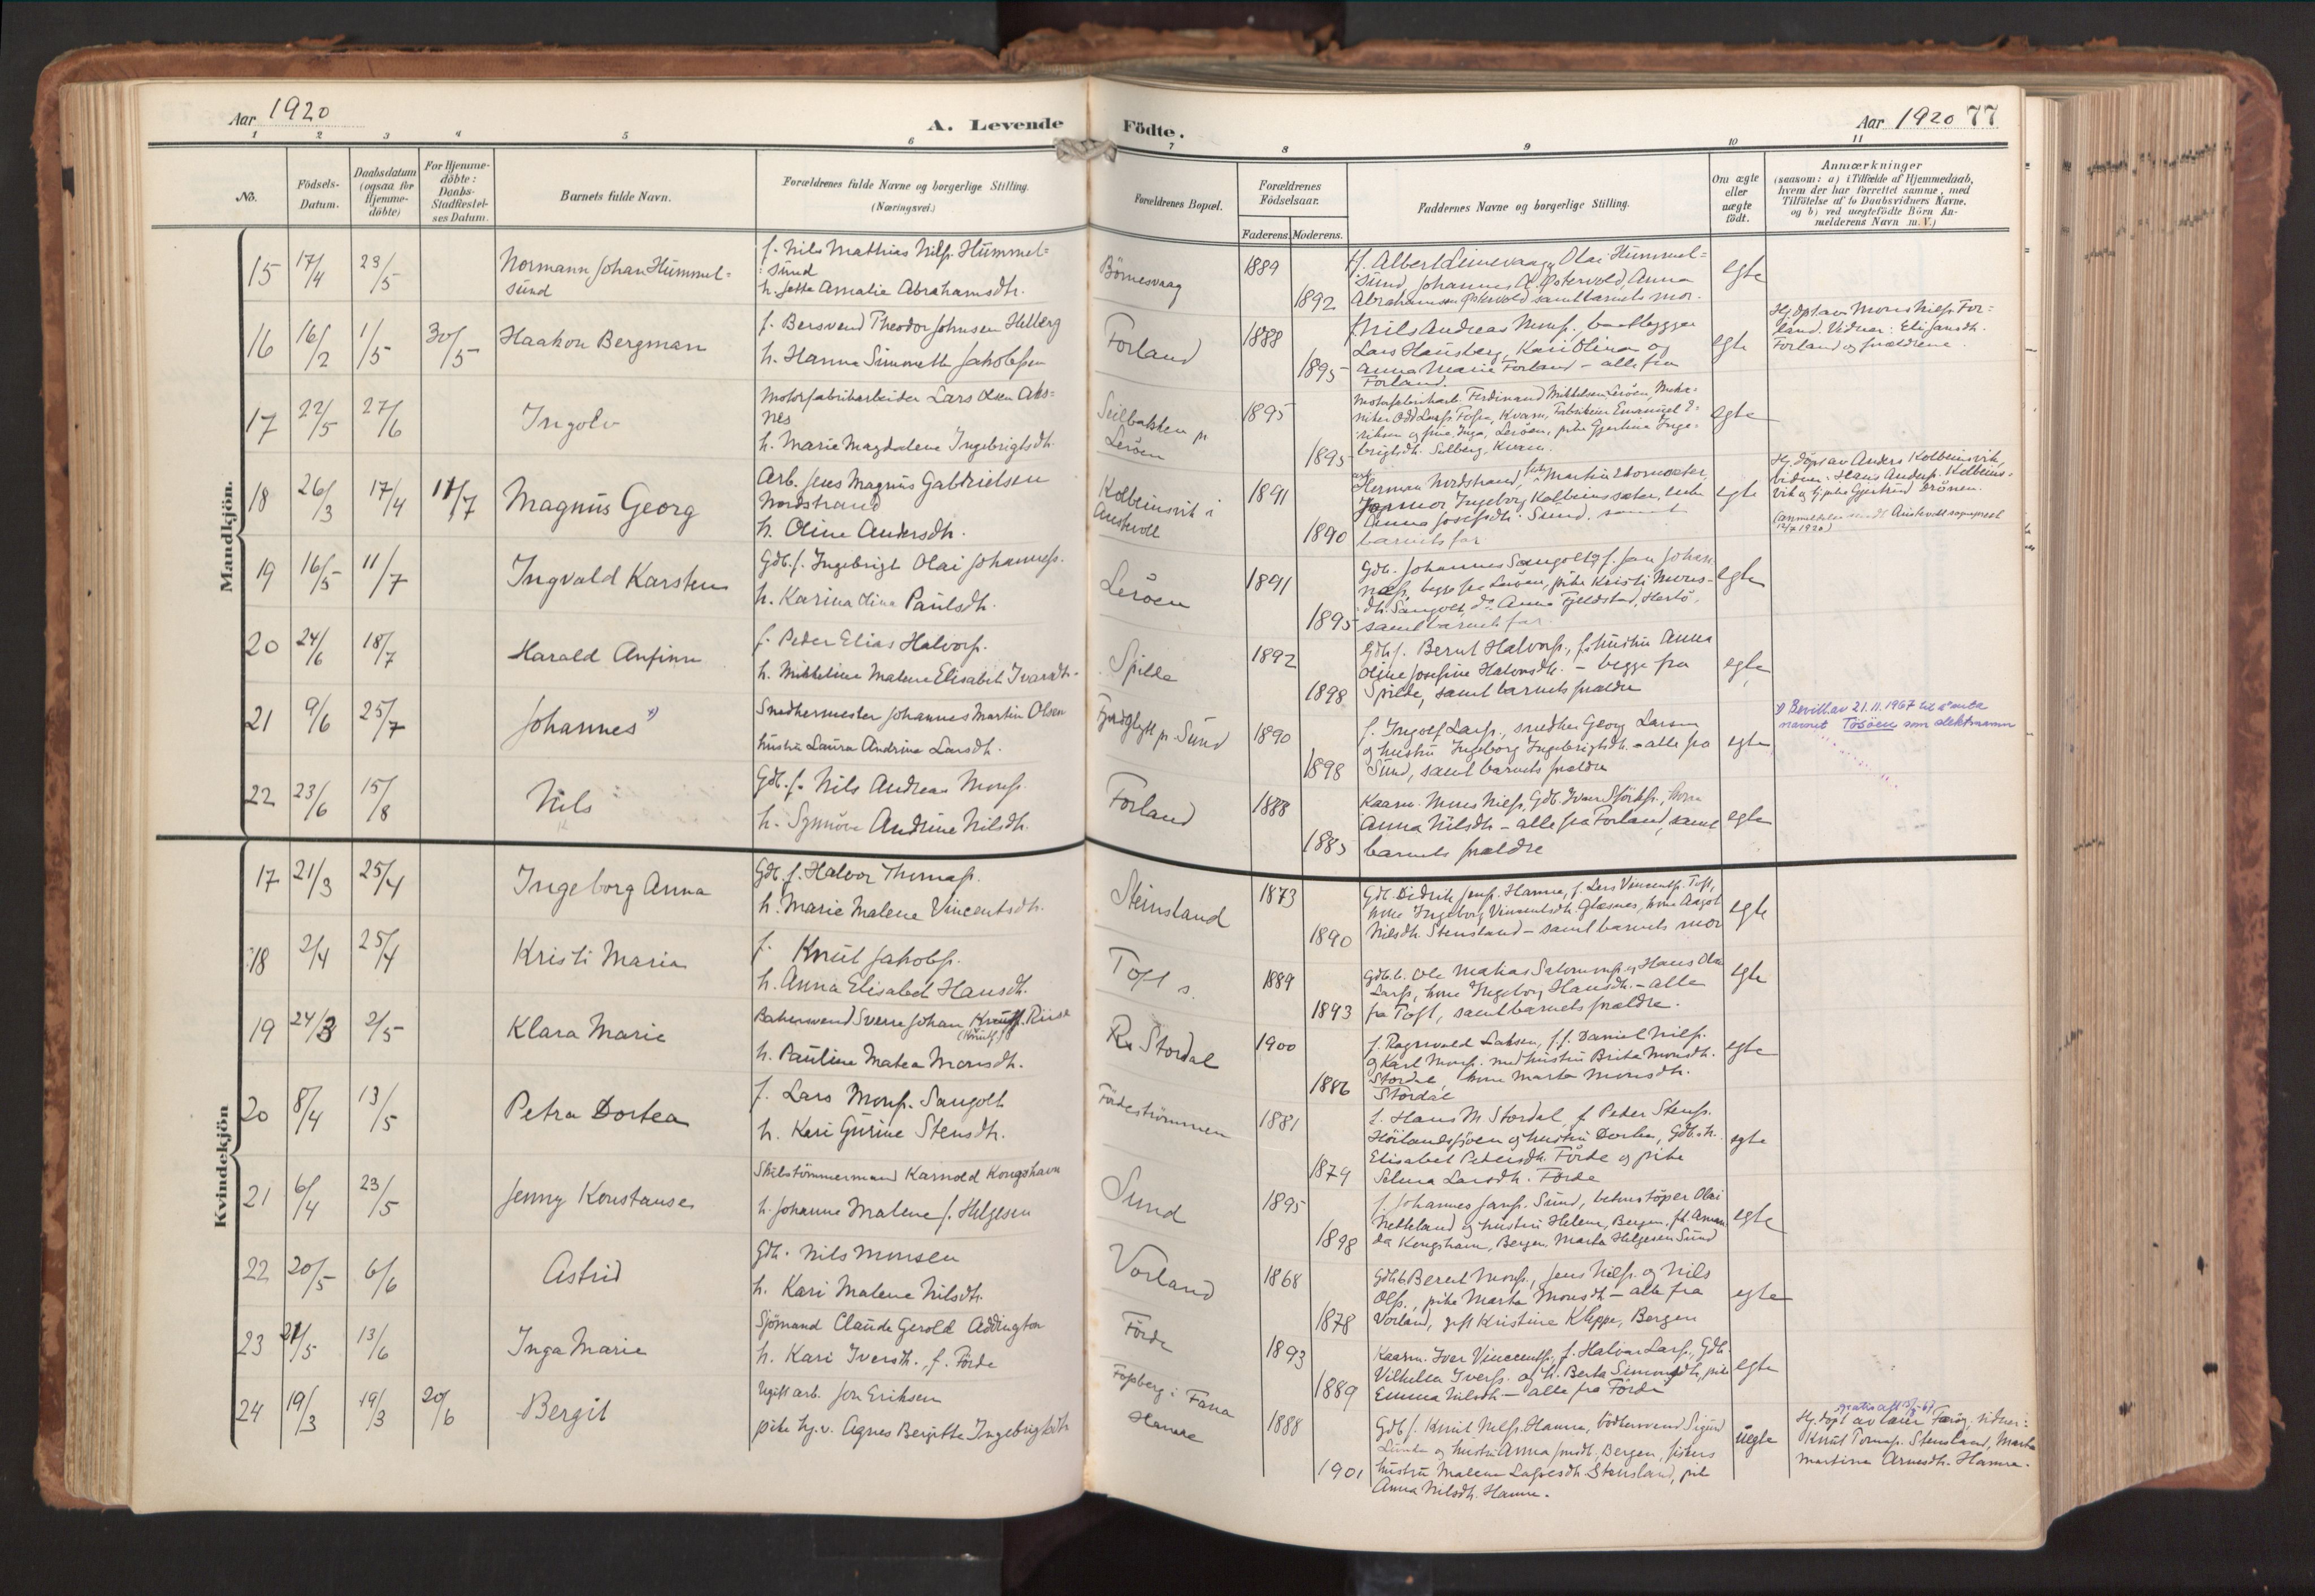 Aar 1920
A. Levende
Födte.
Aar 1920 77
1 2 3 4 5 6 7 8 9 10 11
No.
Födsels-Datum.
Daabsdatum (ogsaa for Hjemme-döbte)
For Hjemme-döbte: Daabs-Stadfestel-ses Datum.
Barnets fulde Navn.
Forældrenes fulde Navne og borgerlige Stilling.
(Næringsvei.)
Forældrenes Bopæl.
Forældrenes Födselsaar.
Faderens. Moderens.
Faddernes Navne og borgerlige Stilling.
Om ægte eller uægte födt.
Anmærkninger
(saasom: a) i Tilfælde af Hjemmedaab,
hvem der har forrettet samme, med
Tilföielse af to Daabsvidners Navne.
og b) ved uægtefödte Börn An-
melderens Navn m. V.)
Mandkjön.
15 17/4 23/5 Normann Johan Hummel=
sund
f. Nils Mathias Nilss. Hummel=
sund
h. Jette Amalie Abrahamsdtr.
Börnesvaag 1889
1892
Olai Hummel=
sund, Johannes A. Østervold, Anna
Abrahamsen Østervold samt barnets mor.
egte
16 16/2 1/5 30/5 Haakon Bergman
f. Bersvend Theodor Johnsen Helberg
h. Hanna Simonette Jakobsen
Forland 1888
1895
f. Nils Andreas Monss. baatbygger
Lars Hausberg, Kari Olina og
Anna Maria Forland - alle fra
Forland.
egte
Hj. döpt av Mons Nilss. For=
land. Vidner: Eli Jansdtr.
Forland og forældrene.
17 22/5 27/6 Ingolv
Motorfabrikarbeider Lars Olsen Aks=
nes
h. Marie Magdalene Ingebrigtsdtr.
Seilbakken pr
Leröen
1895
1895
Motorfabrikarb. Ferdinand Mikkelsen Leröen,
Inga, Leröen, pike Gjertina Inge=
brigtsdtr. Selberg, Kvam.
egte
18 26/3 17/4 11/7 Magnus Georg
Arb. Jens Magnus Gabrielsen
Nordstrand
h. Oline Andersdtr.
Kolbeinsvik i
Austevoll
1891
1890
Herman Nordstrand,
Ingeborg Kolbeinsvik
Anna Josefsdtr. Sund. samt
barnets far
egte
Hj. döpt av Anders Kolbeinsvik,
vidner: Hans Anderss. Kolbeins-
vik og pike Gjertrud Drönen.
12/7 1920)
19 16/5 11/7 Ingvald Karsten
Gdb. f. Ingebrigt Olai Johanness.
h. Karina Olina Paulsdtr.
Leröen 1891
1895
Gdb. Johannes Sangolt og f. Jan Johan
ness. begge fra Leröen, pike Kristi Mons-
dtr. Sangolt, do Anna Fjeldstad,
samt barnets far.
egte
20 24/6 18/7 Harald Anfinn
f. Peder Elias Halvors.
h. Mikkeline Malene Elisabet Ivarsdtr.
Spilde 1892
1898
Gdb f. Bernt Halvors., f. hustru Anna
Oline Josefine Halvorsdtr. - begge fra
Spilde, samt barnets forældre
egte
21 9/6 25/7 Johannes x)
Snedkermester Johannes Martin Olsen
hustru Laura Andrine Larsdtr.
pr. Sund 1890
1898
f. Ingolf Larss., snedker Georg Larsen
og hustru Ingeborg Ingebrigtsdtr. - alle fra
Sund, samt barnets forældre
egte
x) Bevilling 21.11.1967 til å anta
navnet Tösöen som slektsnavn
22 23/6 15/8 Nils
Gdb. f. Nils Andreas Monss.
h. Synnöve Andrine Nilsdtr.
Forland 1888
1885
Kaarm. Mons Nilss, Gdb. Iver Sjurss., kone
Anna Nilsdtr - alle fra Forland, samt
barnets forældre
egte
Kvindekjön
17 21/3 25/4 Ingeborg Anna
Gdb. f. Halvor Thomass.
h. Marie Malene Vincentsdtr.
Steinsland 1873
1890
Gdb. Didrik Jenss. Hamre, f. Lars Vincents. Toft,
kone Ingeborg Vincentsdtr. Glesnes, kone Aagot
Nilsdtr. Stensland - samt barnets mor
egte
18 2/4 25/4 Kristi Maria
f. Knut Jakobs.
h. Anna Elisabet Hansdtr.
Toft s. 1889
1893
Gdb. b. Ole Matias Salomons. og Hans Olai
Larss, kone Ingeborg Hansdtr. - alle
fra Toft, samt barnets forældre.
egte
19 24/3 2/5 Klara Marie
Bakersvend Sverre Johan Knuts. Riise
(Knuts.)
h. Pauline Matea Monsdtr.
Stordal 1900
1886
f. Ragnvald Larsen, f. f. Daniel Nilss.
og Karl Monss. med hustru Brita Monsdtr.
Stordal, kone Marta Monsdtr.
Stordal
egte
20 8/4 13/5 Petra Dortea
f. Lars Monss. Sangolt
h. Kari Gurine Stensdtr.
Fördeströmmen 1881
1879
f. Hans M. Stordal, f. Peder Stenss.
og hustru Dortea, Gdb. h.
Elisabet Pedersdtr. Förde og pike
Selma Larsdtr. Förde
egte
21 6/4 23/5 Jenny Konstanse
Skibstömmermand Karnold Kongshavn
h. Johanne Malene f. Helgesen
Sund 1895
1898
f. Johannes Jans. Sund, betonstöper Olai
Netteland og hustru Helene, Bergen, frk. Aman
da Kongshavn, Bergen, Marta Helgesen Sund
egte
22 20/5 6/6 Astrid
Gdb. Nils Monsen
h. Kari Malene Nilsdtr.
Vorland 1868
1878
Gdb. Berent Monss., Jens Nilss. og Nils
Olss., pike Marta Monsdtr - alle fra
Vorland, gift Kristine Kleppe, Bergen
egte
23 21/5 13/6 Inga Marie
Sjömand Claude Gerold Addington
h. Kari Iversdtr., f. Förde
Förde 1893
1889
Kaarm. Iver Vincents., f. Halvor Larss., Gdb.
Vilhelm Iverss. og h. Berta Simonsdtr, pike
Emma Nilsdtr - alle fra Förde
egte
24 19/3 19/3 20/6 Bergit
Ugift arb. Jon Eriksen
pike hj. v. Agnes Bergitte Ingebrigtsdtr
i Fana
Hamre
1888
1901
Gdb f. Knut Nilss. Hamre, bödkersvend Sigurd
og hustru Anna Bergen, fiskers
hustru Malene Stensland, pike
Anna Nilsdtr. Hamre.
uegte
Hj. döpt av lærer Færöy, vidner:
Knut Tomass. Stensland, Marta
Martina Arnesdtr. Hamre.